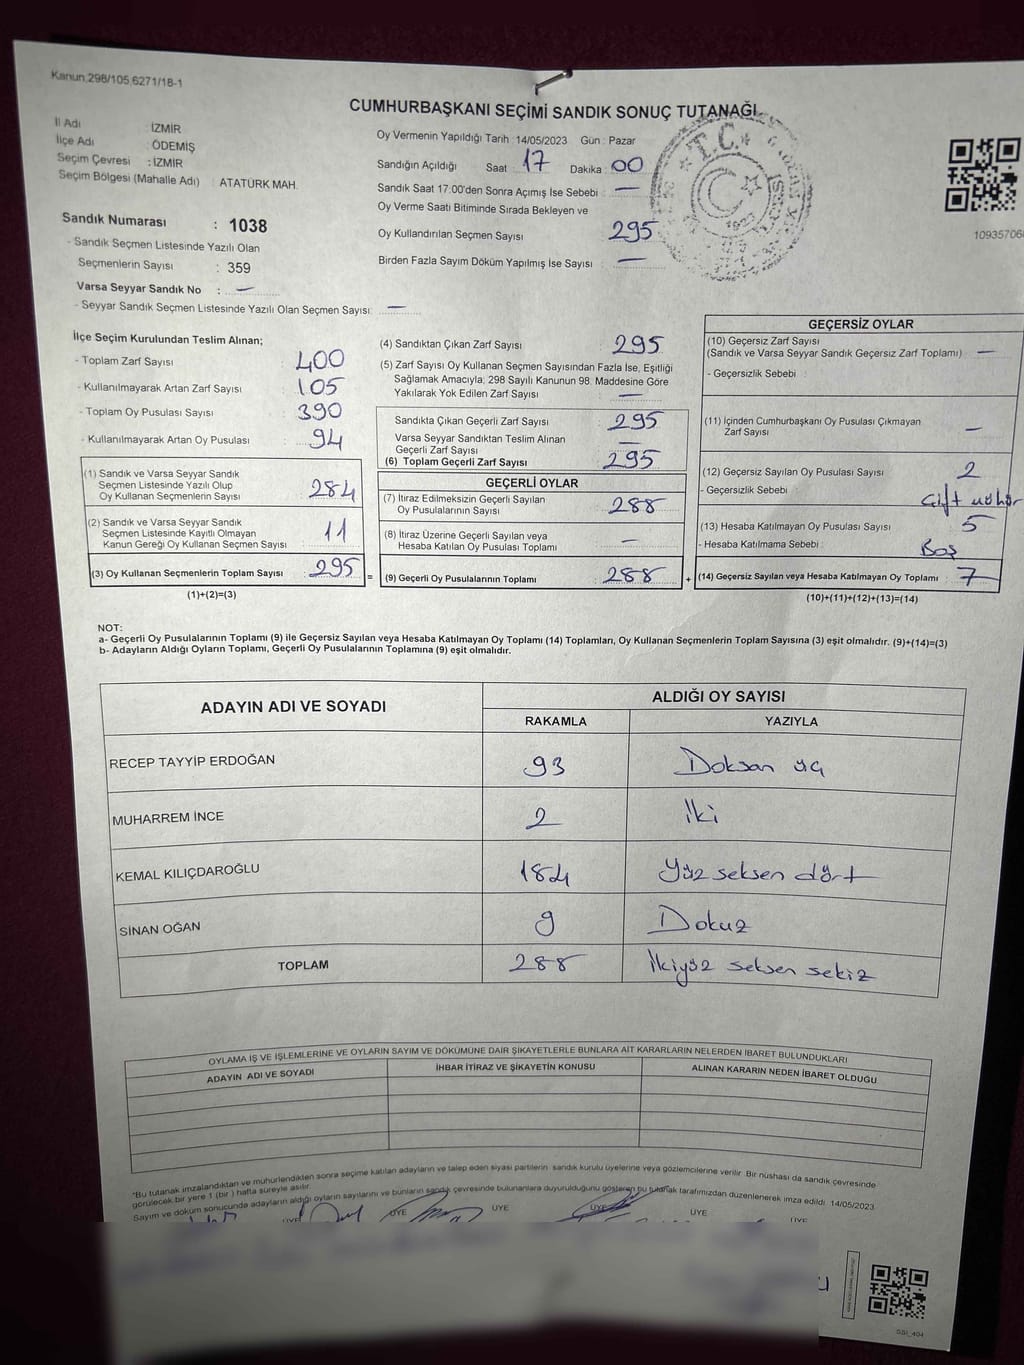 Kanun,298/105,6271/18-1
CUMHURBAŞKANI SEÇİMİ SANDIK SONUÇ TUTANAĞI
İl Adı : İZMİR
İlçe Adı : ÖDEMİŞ
Seçim Çevresi : İZMİR
Seçim Bölgesi (Mahalle Adı) : ATATÜRK MAH.
Oy Vermenin Yapıldığı Tarih :14/05/2023 Gün : Pazar
Sandığın Açıldığı Saat : 17 Dakika : 00
Sandık Saat 17:00'den Sonra Açımış İse Sebebi : —
Oy Verme Saati Bitiminde Sırada Bekleyen ve
Oy Kullandırılan Seçmen Sayısı : 295
Birden Fazla Sayım Döküm Yapılmış İse Sayısı : —
T.C.
Sandık Numarası : 1038
- Sandık Seçmen Listesinde Yazılı Olan
Seçmenlerin Sayısı : 359
Varsa Seyyar Sandık No : —
- Seyyar Sandık Seçmen Listesinde Yazılı Olan Seçmen Sayısı: —
İlçe Seçim Kurulundan Teslim Alınan;
- Toplam Zarf Sayısı : 400
- Kullanılmayarak Artan Zarf Sayısı : 105
- Toplam Oy Pusulası Sayısı : 390
- Kullanılmayarak Artan Oy Pusulası : 94
(1) Sandık ve Varsa Seyyar Sandık
Seçmen Listesinde Yazılı Olup
Oy Kullanan Seçmenlerin Sayısı : 284
(2) Sandık ve Varsa Seyyar Sandık
Seçmen Listesinde Kayıtlı Olmayan
Kanun Gereği Oy Kullanan Seçmen Sayısı : 11
(3) Oy Kullanan Seçmenlerin Toplam Sayısı : 295
(1)+(2)=(3)
(4) Sandıktan Çıkan Zarf Sayısı : 295
(5) Zarf Sayısı Oy Kullanan Seçmen Sayısından Fazla İse, Eşitliği
Sağlamak Amacıyla; 298 Sayılı Kanunun 98. Maddesine Göre
Yakılarak Yok Edilen Zarf Sayısı : —
Sandıkla Çıkan Geçerli Zarf Sayısı : 295
Varsa Seyyar Sandıktan Teslim Alınan
Geçerli Zarf Sayısı : —
(6) Toplam Geçerli Zarf Sayısı : 295
GEÇERLİ OYLAR
(7) İtiraz Edilmeksizin Geçerli Sayılan
Oy Pusulalarının Sayısı : 288
(8) İtiraz Üzerine Geçerli Sayılan veya
Hesaba Katılan Oy Pusulası Toplamı : —
= (9) Geçerli Oy Pusulalarının Toplamı : 288 +
GEÇERSİZ OYLAR
(10) Geçersiz Zarf Sayısı
(Sandık ve Varsa Seyyar Sandık Geçersiz Zarf Toplamı) : —
- Geçersizlik Sebebi :
(11) İçinden Cumhurbaşkanı Oy Pusulası Çıkmayan
Zarf Sayısı : —
(12) Geçersiz Sayılan Oy Pusulası Sayısı : 2
- Geçersizlik Sebebi : Çift mühür
(13) Hesaba Katılmayan Oy Pusulası Sayısı : 5
- Hesaba Katılmama Sebebi : Boş
(14) Geçersiz Sayılan veya Hesaba Katılmayan Oy Toplamı : 7
(10)+(11)+(12)+(13)=(14)
NOT:
a- Geçerli Oy Pusulalarının Toplamı (9) ile Geçersiz Sayılan veya Hesaba Katılmayan Oy Toplamı (14) Toplamları, Oy Kullanan Seçmenlerin Toplam Sayısına (3) eşit olmalıdır. (9)+(14)=(3)
b- Adayların Aldığı Oyların Toplamı, Geçerli Oy Pusulalarının Toplamına (9) eşit olmalıdır.
ADAYIN ADI VE SOYADI
ALDIĞI OY SAYISI
RAKAMLA YAZIYLA
RECEP TAYYİP ERDOĞAN 93 Doksan üç
MUHARREM İNCE 2 İki
KEMAL KILIÇDAROĞLU 184 Yüz seksen dört
SİNAN OĞAN 9 Dokuz
TOPLAM 288 İkiyüz seksen sekiz
OYLAMA İŞ VE İŞLEMLERİNE VE OYLARIN SAYIM VE DÖKÜMÜNE DAİR ŞİKAYETLERLE BUNLARA AİT KARARLARIN NELERDEN İBARET BULUNDUKLARI
ADAYIN ADI VE SOYADI İHBAR İTİRAZ VE ŞİKAYETİN KONUSU ALINAN KARARIN NEDEN İBARET OLDUĞU
*Bu tutanak imzalandıktan ve mühürlendikten sonra seçime katılan adayların ve talep eden siyasi partilerin sandık kurulu üyelerine veya gözlemcilerine verilir. Bir nüshası da sandık çevresinde
görülecek bir yere 1 (bir ) hafta süreyle asılır.
Sayım ve döküm sonucunda adayların aldığı oyların sayılarını ve bunların sandık çevresinde bulunanlara duyurulduğunu gösteren bu tutanak tarafımızdan düzenlenerek imza edildi. 14/05/2023
ÜYE ÜYE ÜYE ÜYE ÜYE ÜYE
SSI_404